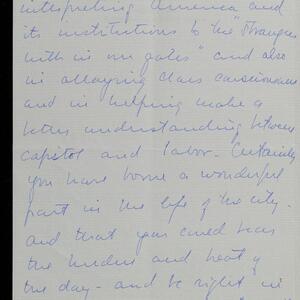 interpreting America and
its institutions to the "stranger
with in our gates" and also
in allaying class consciousness
and in helping make a
better understanding between
capitol and labor - Certainly
you have borne a wonderful
part in the life of the city -
and that you could bear
the burden and heat of
the day - and be right in